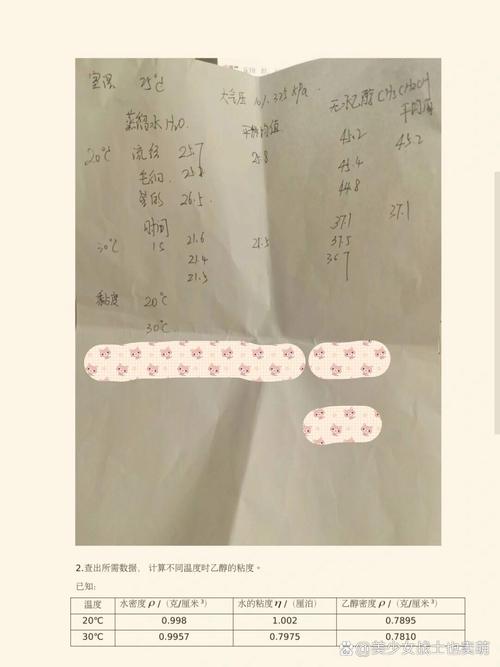 室温 25℃ 大气压 101.325 kPa 无水乙醇 CH3CH2OH
蒸馏水 H2O. 平均值 平均值
20℃ 流经 25.7 25.8 45.2 45.2
毛细 25.2 45.4
管的 26.5. 44.8
时间
30℃ 1s 21.6 21.5 37.1 37.1
21.4 37.5
21.5 36.7
黏度 20℃
30℃
2.查出所需数据, 计算不同温度时乙醇的粘度。
已知:
温度 水密度 ρ /(克/厘米³) 水的粘度 η /(厘泊) 乙醇密度 ρ /(克/厘米³)
20℃ 0.998 1.002 0.7895
30℃ 0.9957 0.7975 0.7810
CSDN @美少女战士也卖萌